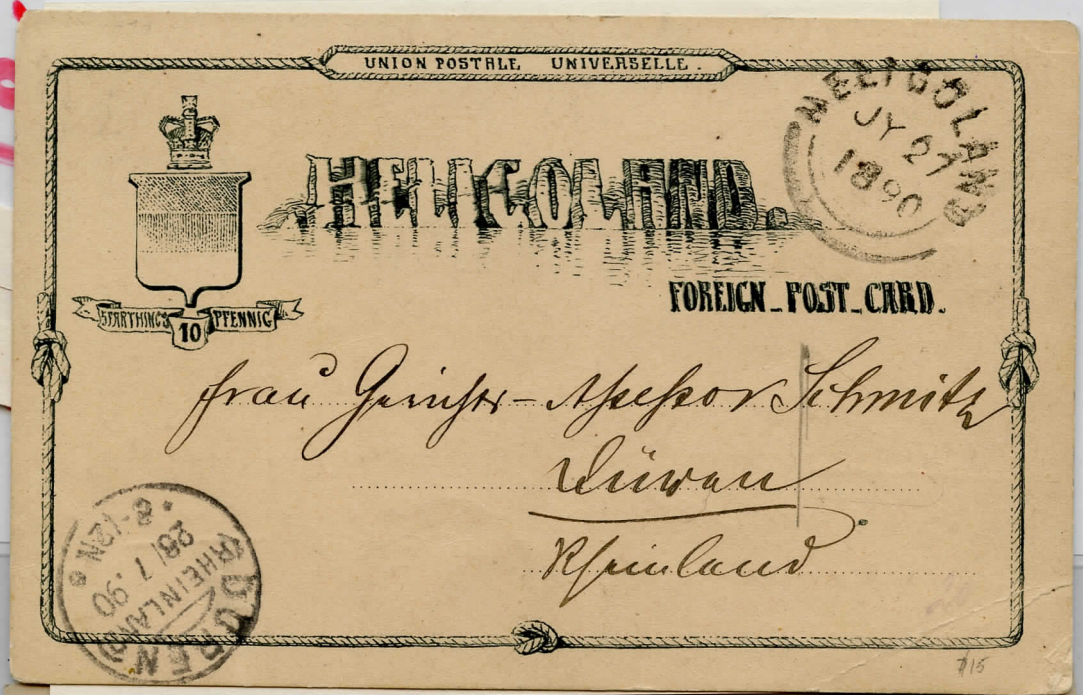 UNION POSTALE UNIVERSELLE.
HELIGOLAND
HELIGOLAND
JY 27
1890
FOREIGN_POST_CARD.
5 FARTHINGS 10 PFENNIG
Frau Gerichts-Assessor Schmitz
Düren
Rheinland
DÜREN
(RHEINLAND)
28/7.90
8-12N
15